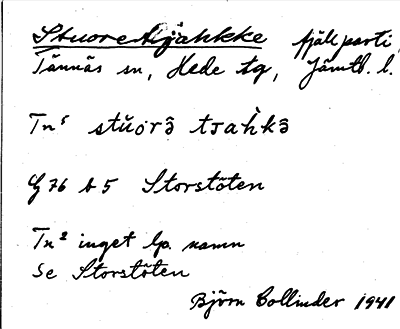 Stuoretjåhkke fjällparti,
Tännäs sn, Hede tg, Jämtl. l.
Tn⁵ stŭorə̂ tsah̀kə̂
G 76 b 5 Storstöten
Tn² inget lp. namn
Se Storstöten
Björn Collinder 1941